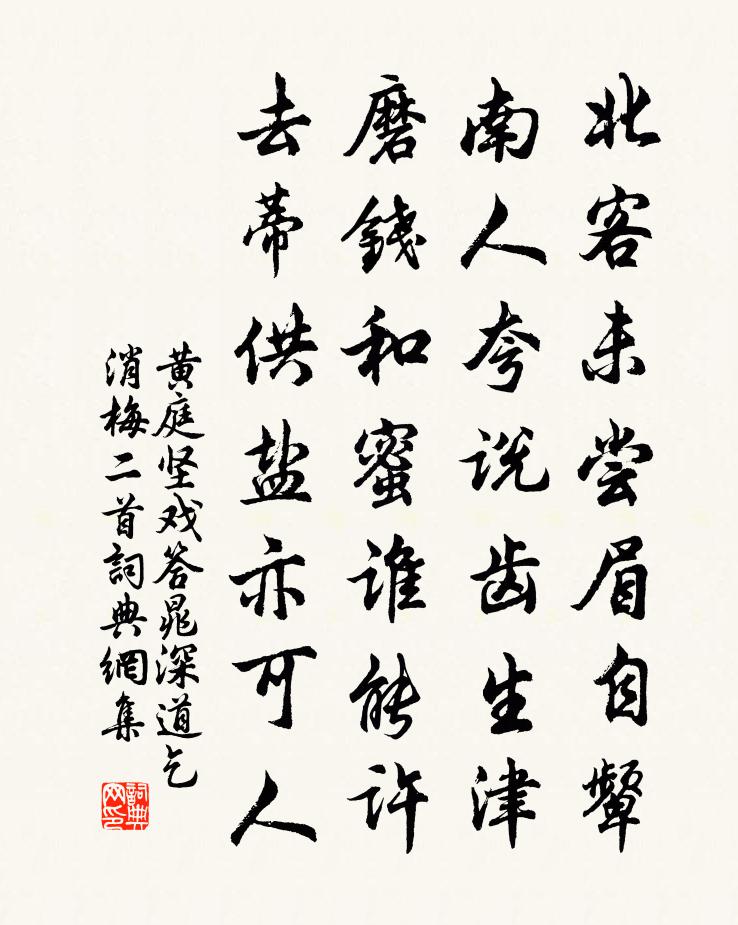 北客未尝眉自颦
南人夸说齿生津
磨錢和蜜谁能许
去蒂供盐亦可人
黄庭坚戏答晁深道乞
消梅二首詞典網集
詞典
网印